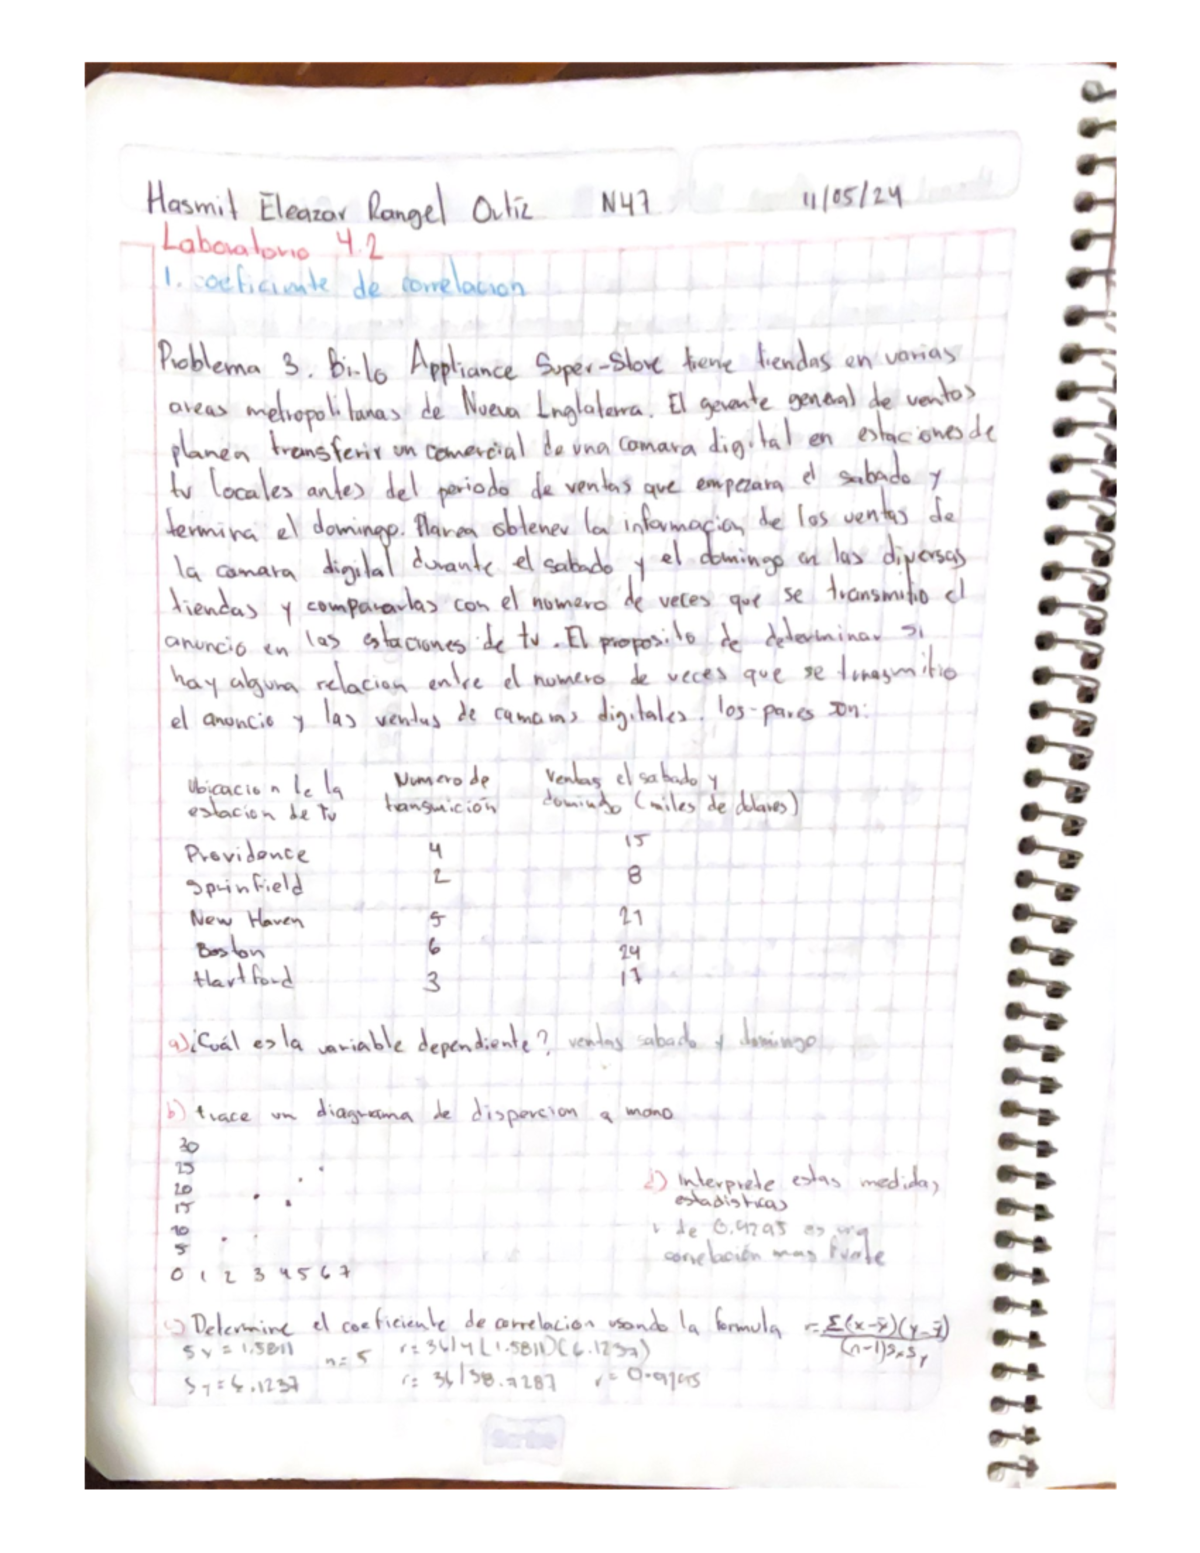 Hasmit Eleazar Rangel Ortiz N47 11/05/24
Laboratorio 4.2
1. coeficiente de correlacion
Problema 3. Bi-lo Appliance Super-Store tiene tiendas en varias
areas metropolitanas de Nueva Inglaterra. El gerente general de ventas
planea transferir un comercial de una camara digital en estaciones de
tv locales antes del periodo de ventas que empezara el sabado y
termina el domingo. Planea obtener la informacion de las ventas de
la camara digital durante el sabado y el domingo en las diversas
tiendas y compararlas con el numero de veces que se transmitio el
anuncio en las estaciones de tv. El proposito de determinar si
hay alguna relacion entre el numero de veces que se transmitio
el anuncio y las ventas de camaras digitales. los pares son:
Ubicacion de la Numero de Ventas el sabado y
estacion de Tv transmición domindo (miles de dolares)
Providence 4 15
Sprinfield 2 8
New Haven 5 21
Boston 6 24
Hartford 3 17
a) ¿Cuál es la variable dependiente? ventas sabado y domingo
b) trace un diagrama de dispercion a mano
30
25
20
15
10
5
0 1 2 3 4 5 6 7
d) Interprete estas medidas
estadisticas
r de 0.9295 es una
correlación mas fuerte
c) Determine el coeficiente de correlacion usando la formula r=Σ(x-x̄)(y-ȳ)
(n-1)SxSy
Sx = 1.5811 n=5 r=36/4(1.5811)(6.1237)
Sy=6.1237 r= 36/38.7287 r=0.9295
Scribe